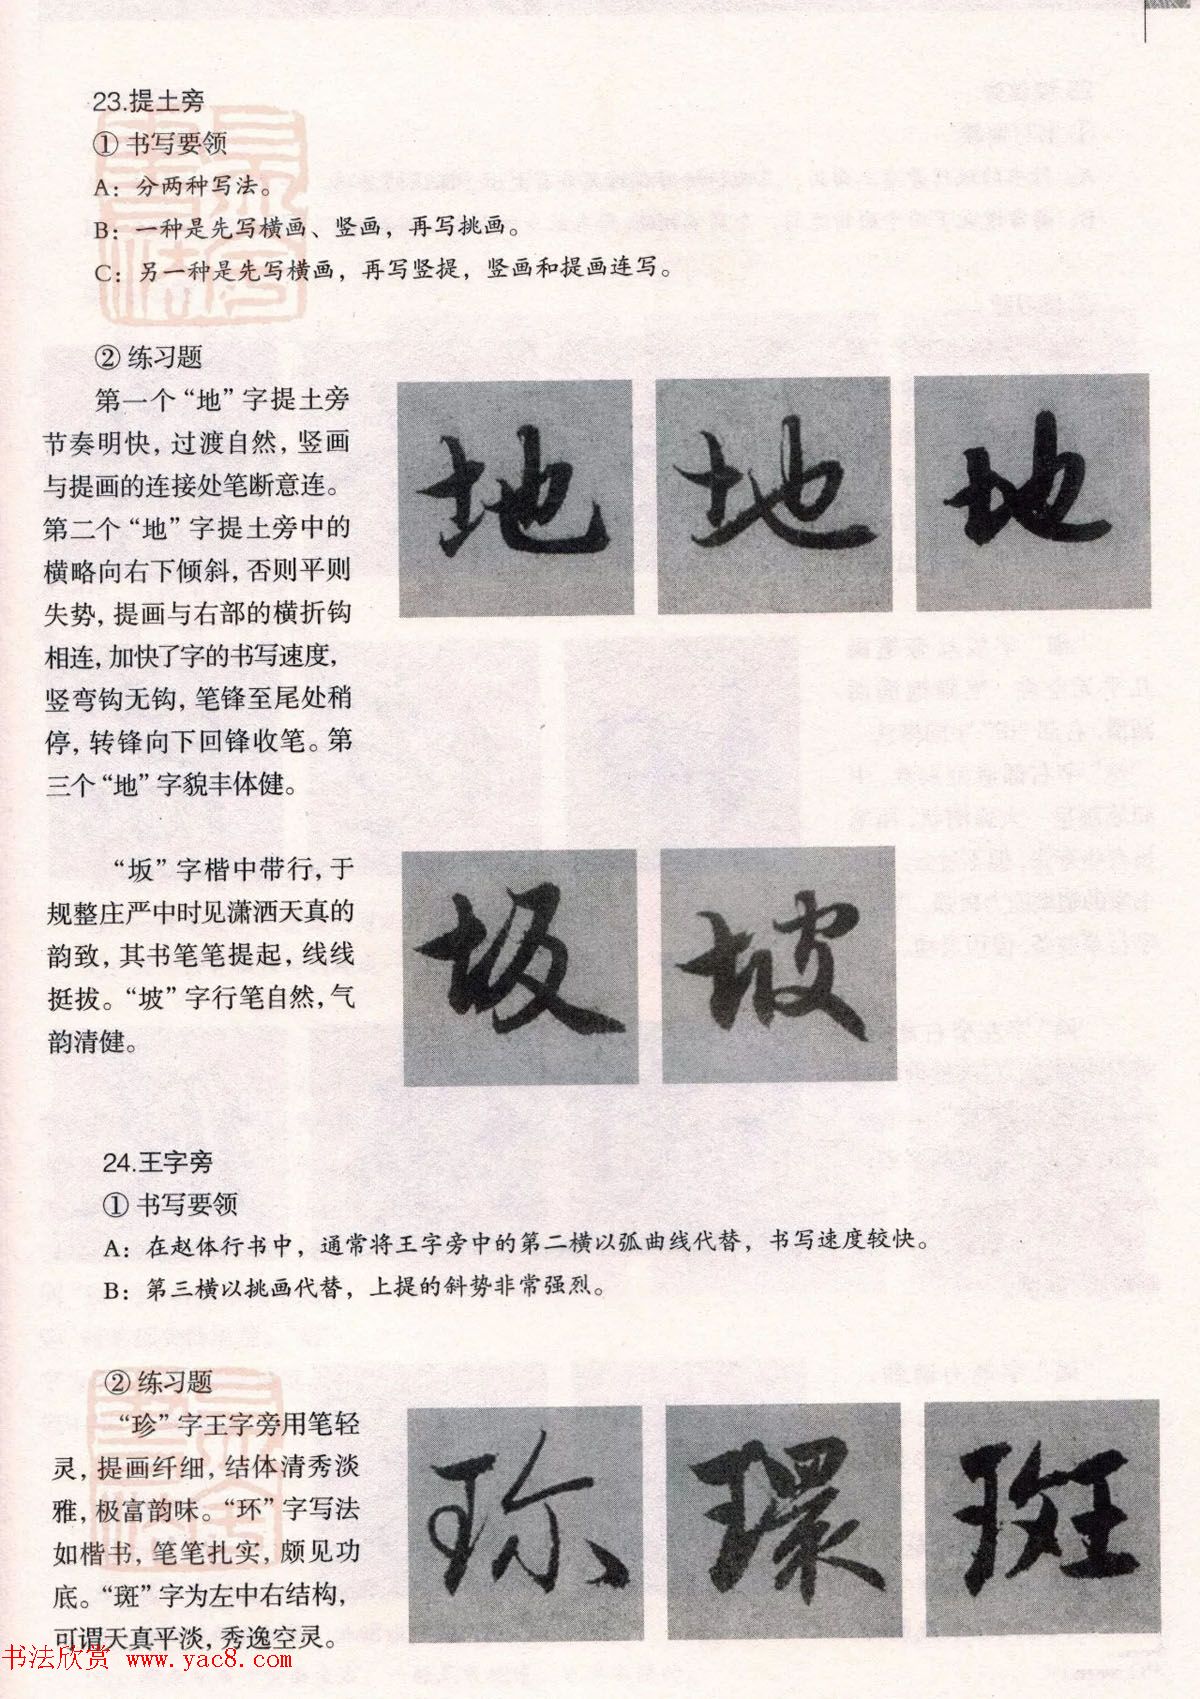 23.提土旁
① 书写要领
A：分两种写法。
B：一种是先写横画、竖画，再写挑画。
C：另一种是先写横画，再写竖提，竖画和提画连写。
② 练习题
第一个“地”字提土旁
节奏明快，过渡自然，竖画
与提画的连接处笔断意连。
第二个“地”字提土旁中的
横略向右下倾斜，否则平则
失势，提画与右部的横折钩
相连，加快了字的书写速度，
竖弯钩无钩，笔锋至尾处稍
停，转锋向下回锋收笔。第
三个“地”字貌丰体健。
地 地 地
“坂”字楷中带行，于
规整庄严中时见潇洒天真的
韵致，其书笔笔提起，线线
挺拔。“坡”字行笔自然，气
韵清健。
坂 坡
24.王字旁
① 书写要领
A：在赵体行书中，通常将王字旁中的第二横以弧曲线代替，书写速度较快。
B：第三横以挑画代替，上提的斜势非常强烈。
② 练习题
“珍”字王字旁用笔轻
灵，提画纤细，结体清秀淡
雅，极富韵味。“环”字写法
如楷书，笔笔扎实，颇见功
底。“斑”字为左中右结构，
可谓天真平淡，秀逸空灵。
珎 環 斑
书法欣赏 www.yac8.com